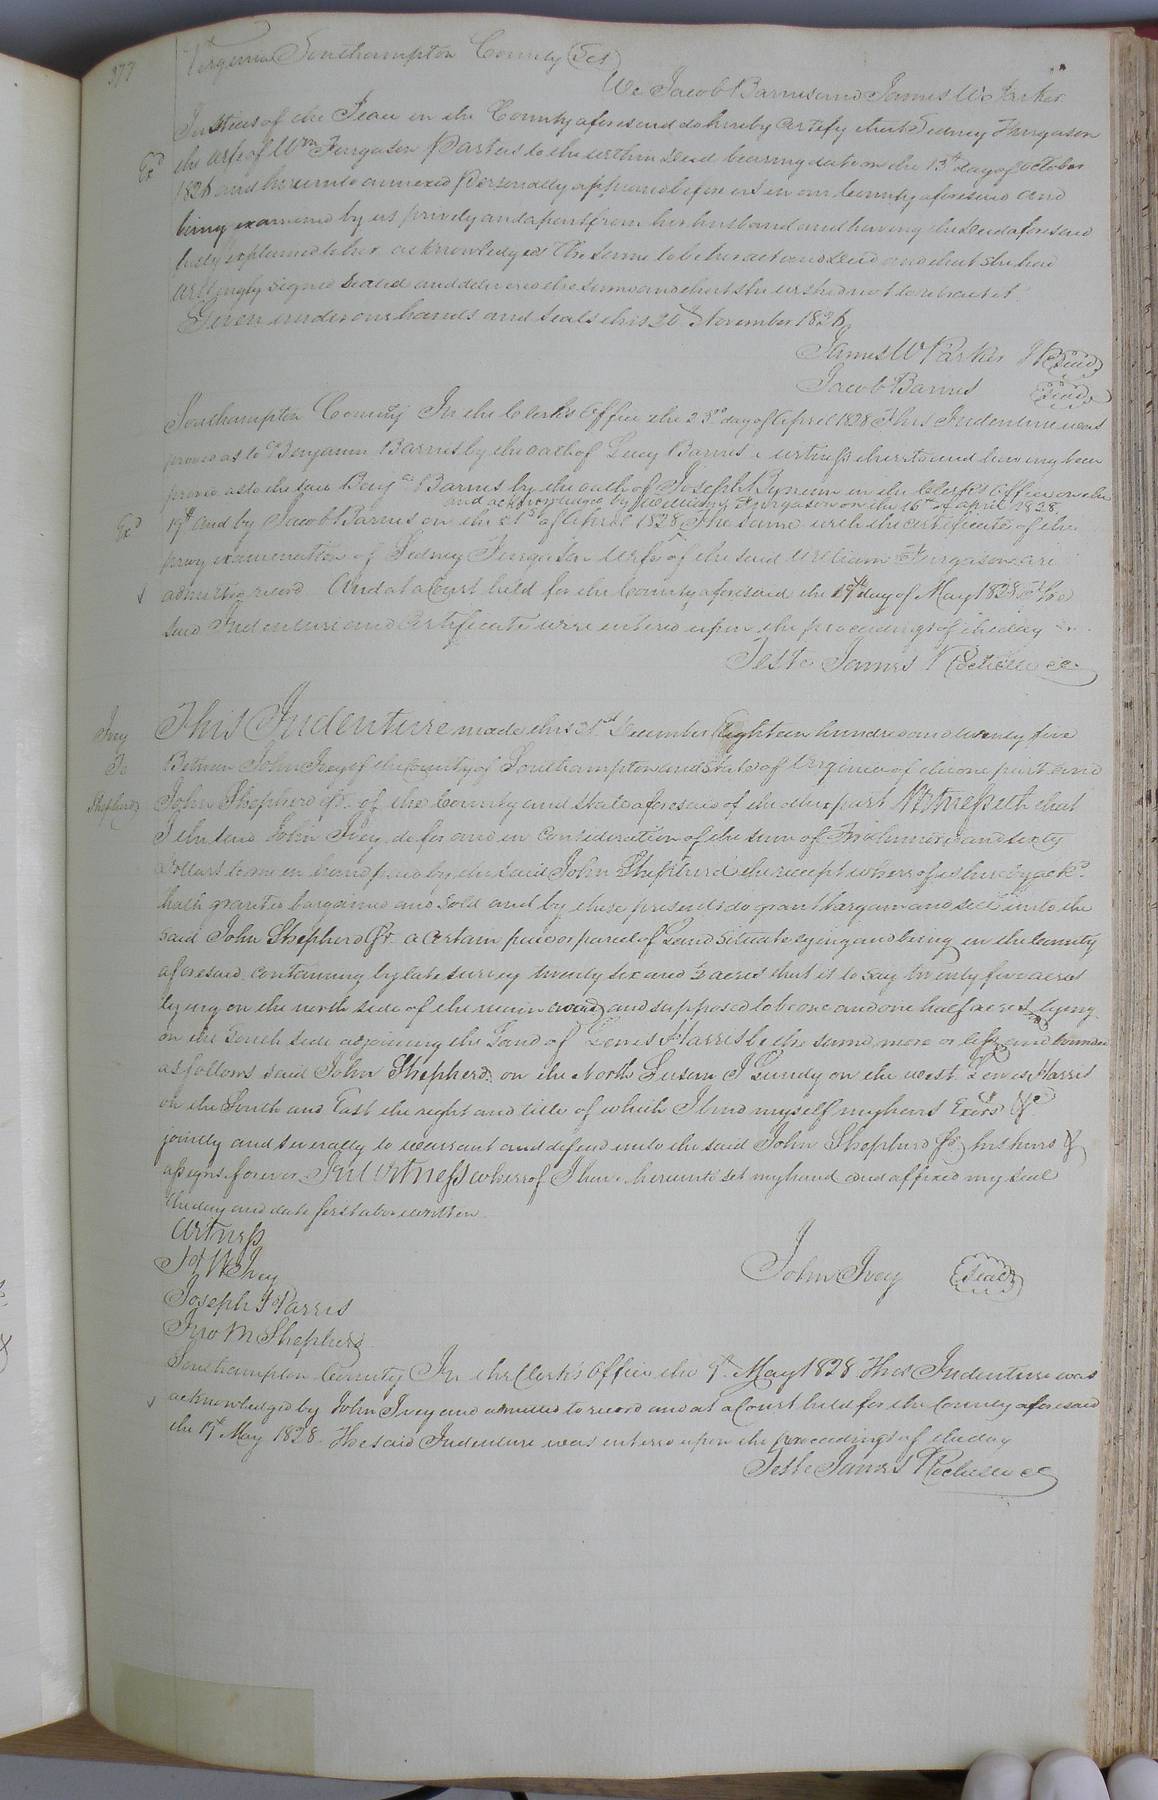 377
Virginia Southampton County (Sct)
We Jacob Barnes and James W Parker
Justices of the Peace in the County aforesaid do hereby certify that Sidney Furgason
Exd
the wife of Wm Furgason Parties to the within Deed bearing date on the 13th day of October
1826 and hereunto annexed personally appeared before us in our County aforesaid and
being examined by us privily and apart from her husband and having the Deed aforesaid
fully explained to her acknowledged the same to be her act and Deed and that she had
willingly signed Sealed and delivered the same and that she wished not to retract it
Given under our hands and Seals this 20th November 1826
James W Parker (Seal)
Jacob Barnes (Seal)
Southampton County In the Clerks Office the 23rd day of April 1828 This Indenture was
proved as to Benjamin Barnes by the oath of Lucy Barnes a witness thereto and having been
proved as to the said Benja Barnes by the oath of Joseph Bynum in the Clerk's Office on the
and acknowledged by William Furgason on the 16th of april 1828
Exd
19th and by Jacob Barnes on the 21st of April 1828 The same with the certificate of the
privy examination of Sidney Furgason wife of the said William Furgason are
admitted to record And at a Court held for the County aforesaid the 19th day of May 1828 The
said Indenture and Certificate were entered upon the proceedings of the day
Teste James Rochelle cc
Ivey
To
Shepherd
This Indenture made this 21st December Eighteen hundred and twenty five
Between John Ivey of the County of Southampton and State of Virginia of the one part and
John Shepherd Jr of the County and State aforesaid of the other part Witnesseth that
I the said John Ivey do for and in Consideration of the sum of Two hundred and sixty
Dollars to me in hand paid by the said John Shepherd the receipt whereof is hereby ackd
hath granted bargained and Sold and by these presents do grant bargain and sell unto the
said John Shepherd Jr a certain piece or parcel of Land situate lying and being in the County
aforesaid containing by late survey twenty six and ½ acres that is to say twenty five acres
lying on the north side of the main road and supposed to be one and one half acres lying
on the South side adjoining the Land of Lewis Harris be the same more or less and bounded
as follows said John Shepherd on the North Susan J Gundy on the west Lewis Harris
on the South and East the right and title of which I bind myself my heirs Exors &c
jointly and severally to warrant and defend unto the said John Shepherd Jr his heirs &
assigns forever In Witness whereof I have hereunto set my hand and affixed my seal
the day and date first above written
Witness
W Ivey
Joseph Harris
Jno M Shepherd
John Ivey (Seal)
Southampton County In the Clerk's Office the 9th May 1828 This Indenture was
acknowledged by John Ivey and admitted to record and at a Court held for the County aforesaid
the 19th May 1828 The said Indenture was entered upon the proceedings of the day
Teste James Rochelle cc